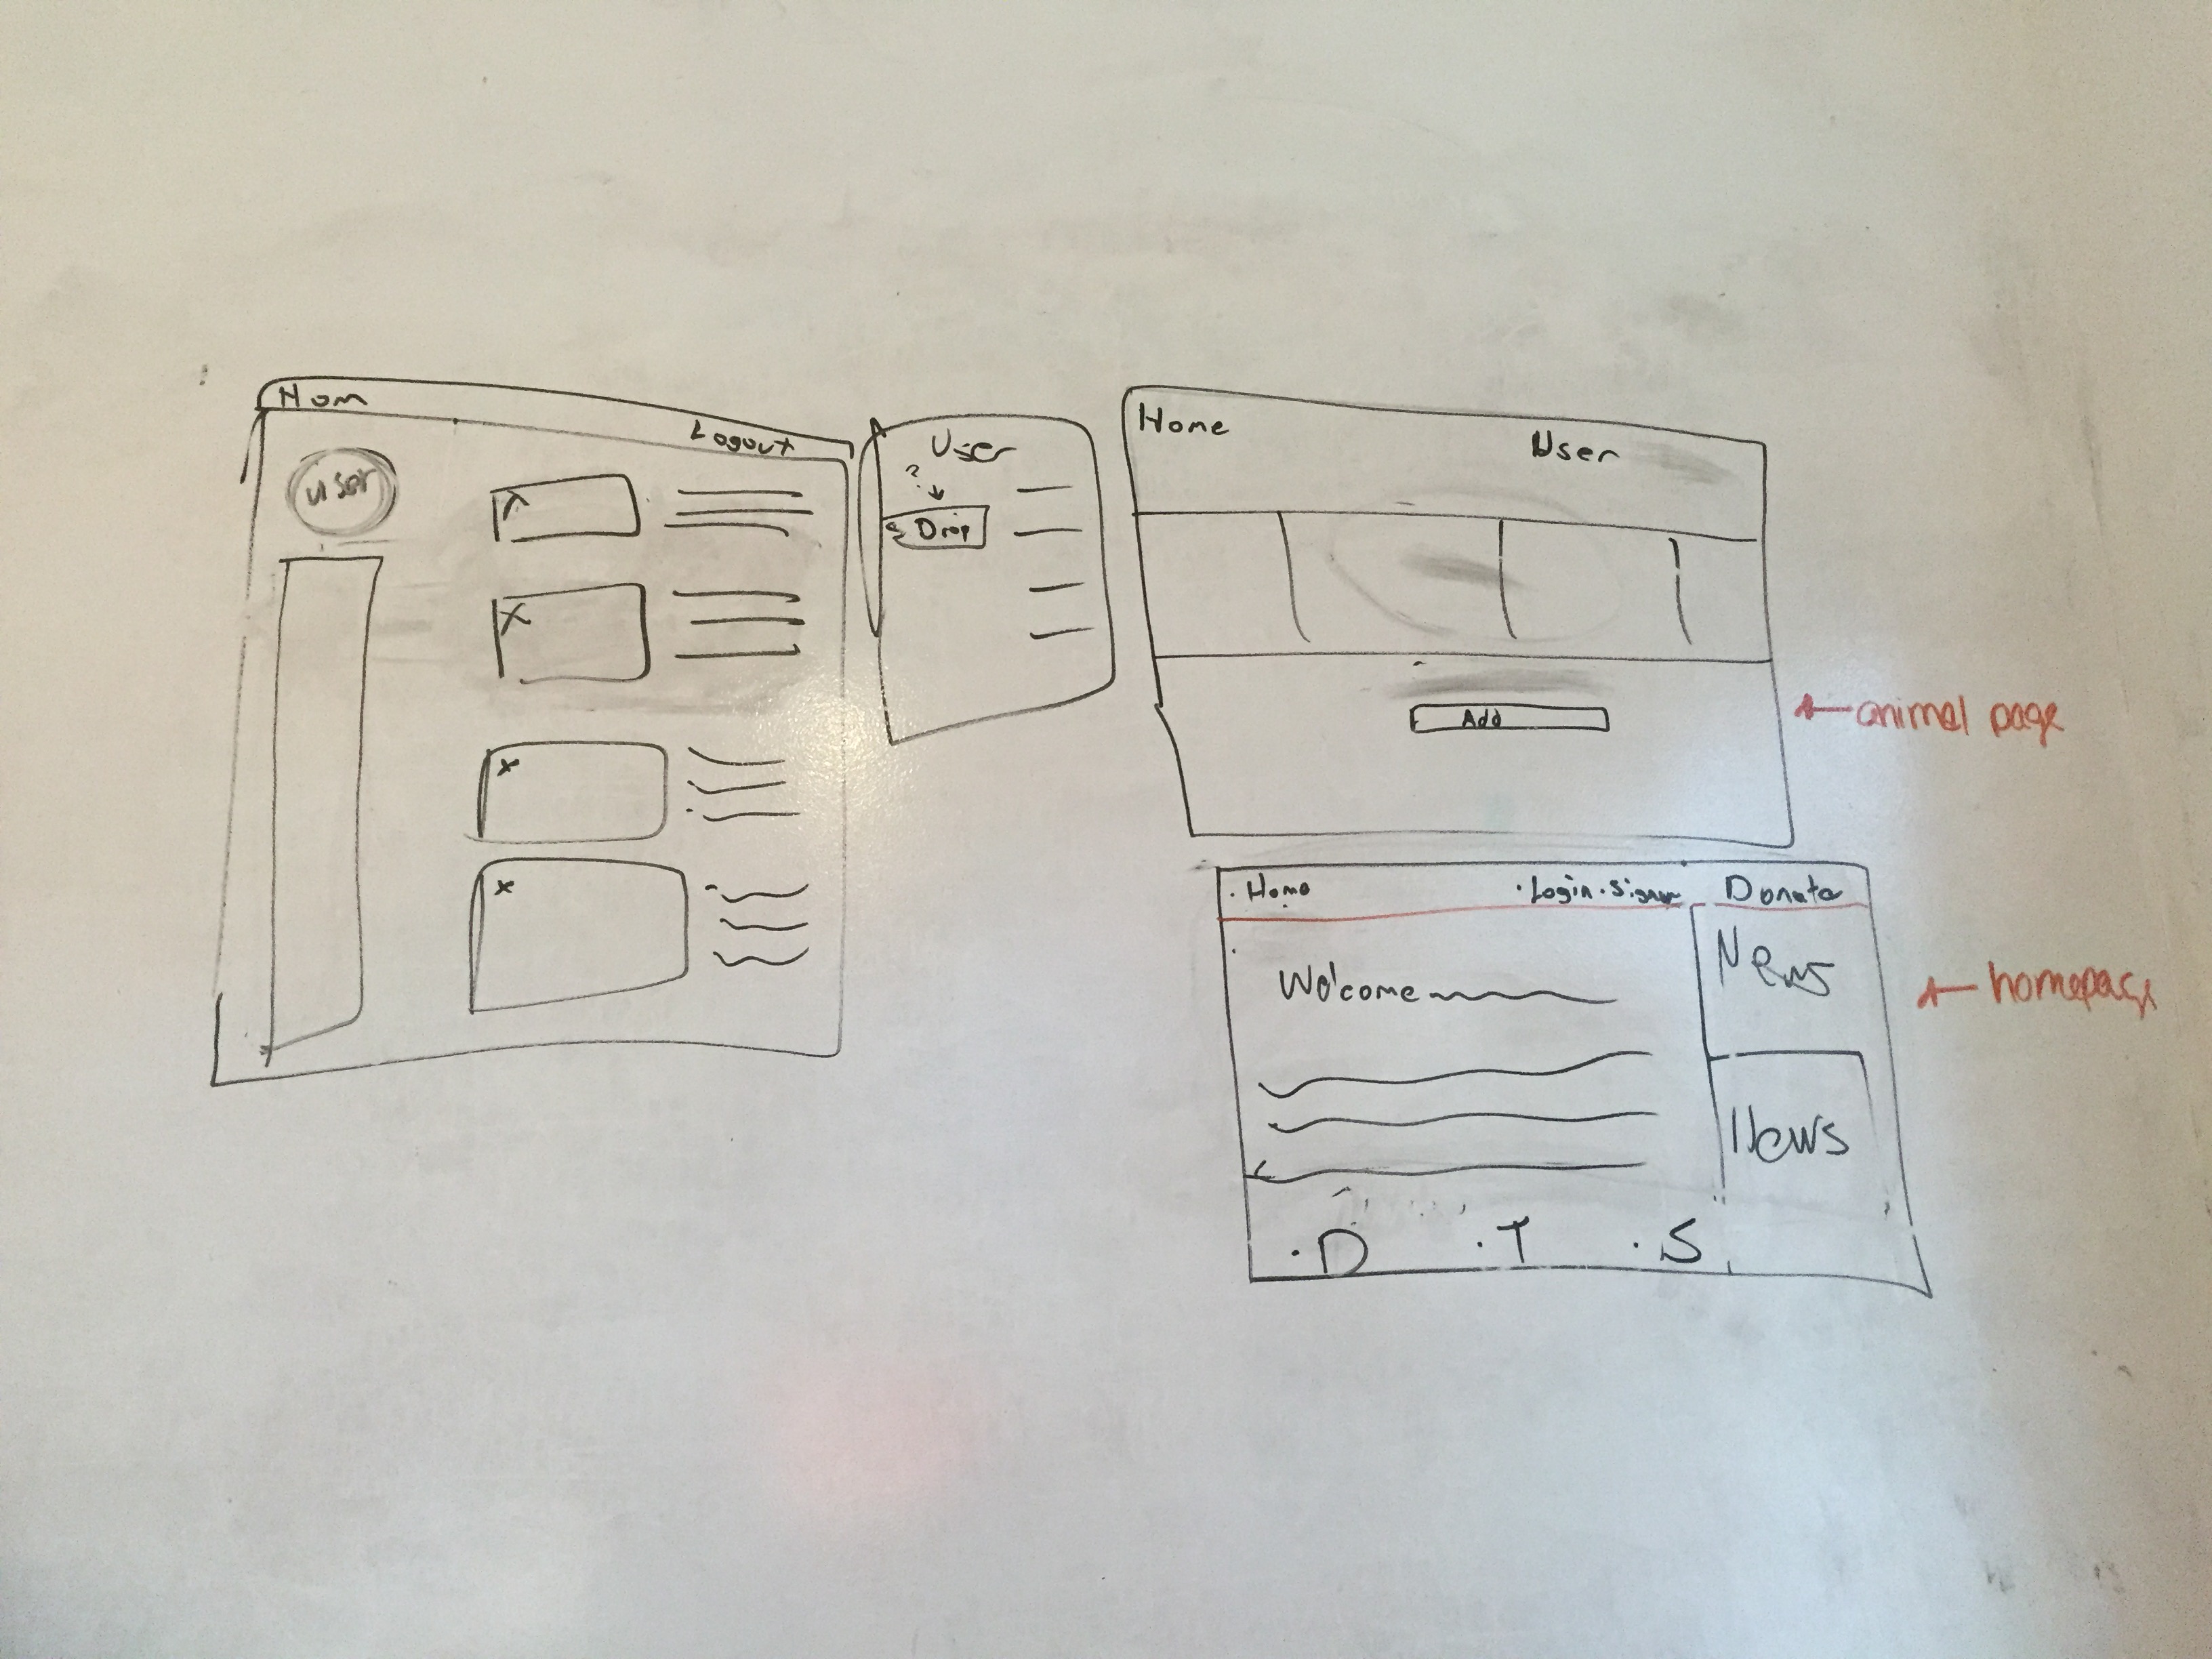 Hom
Logout
user
x
x
x
User
?
Drop
Home
User
Add
animal page
· Home
· Login · Signup
Donate
Welcome
News
News
homepage
· D
· T
· S